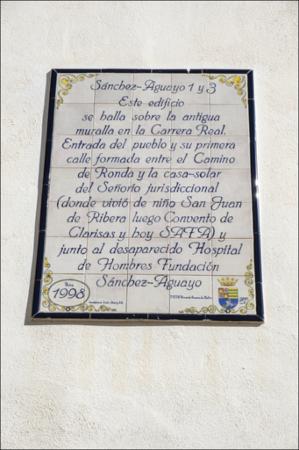 Sánchez-Aguayo 1 y 3
Este edificio
se halla sobre la antigua
muralla en la Carrera Real.
Entrada del pueblo y su primera
calle formada entre el Camino
de Ronda y la casa-solar
del Señorío jurisdiccional
(donde vivió de niño San Juan
de Ribera luego Convento de
Clarisas y hoy SAFA) y
junto al desaparecido Hospital
de Hombres Fundación
Sánchez-Aguayo
1998